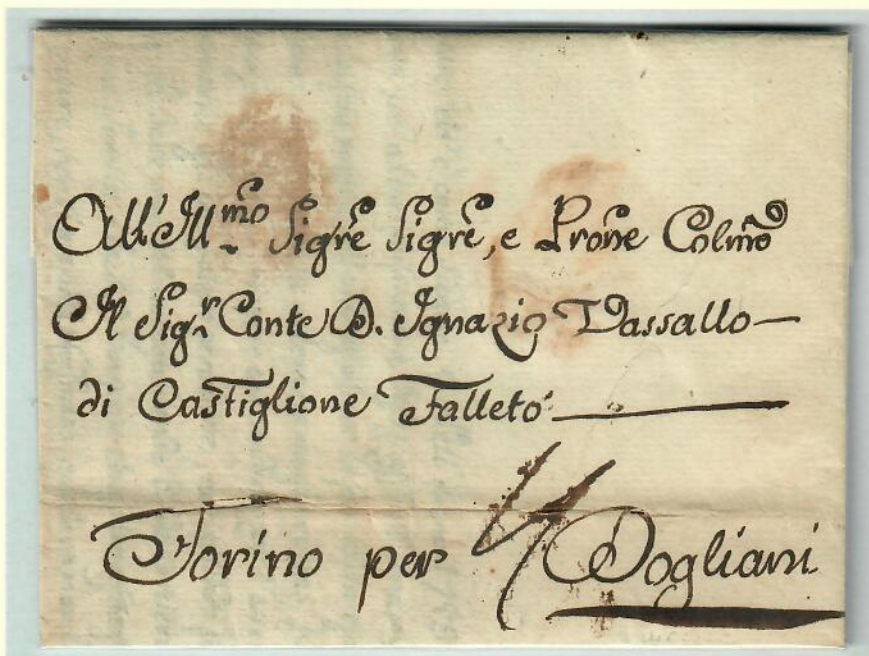 All'Ill.mo Sigre Sigre, e Prone Colmo
Il Sig.r Conte D. Ignazio Vassallo
di Castiglione Falleto
Torino per 4 Dogliani